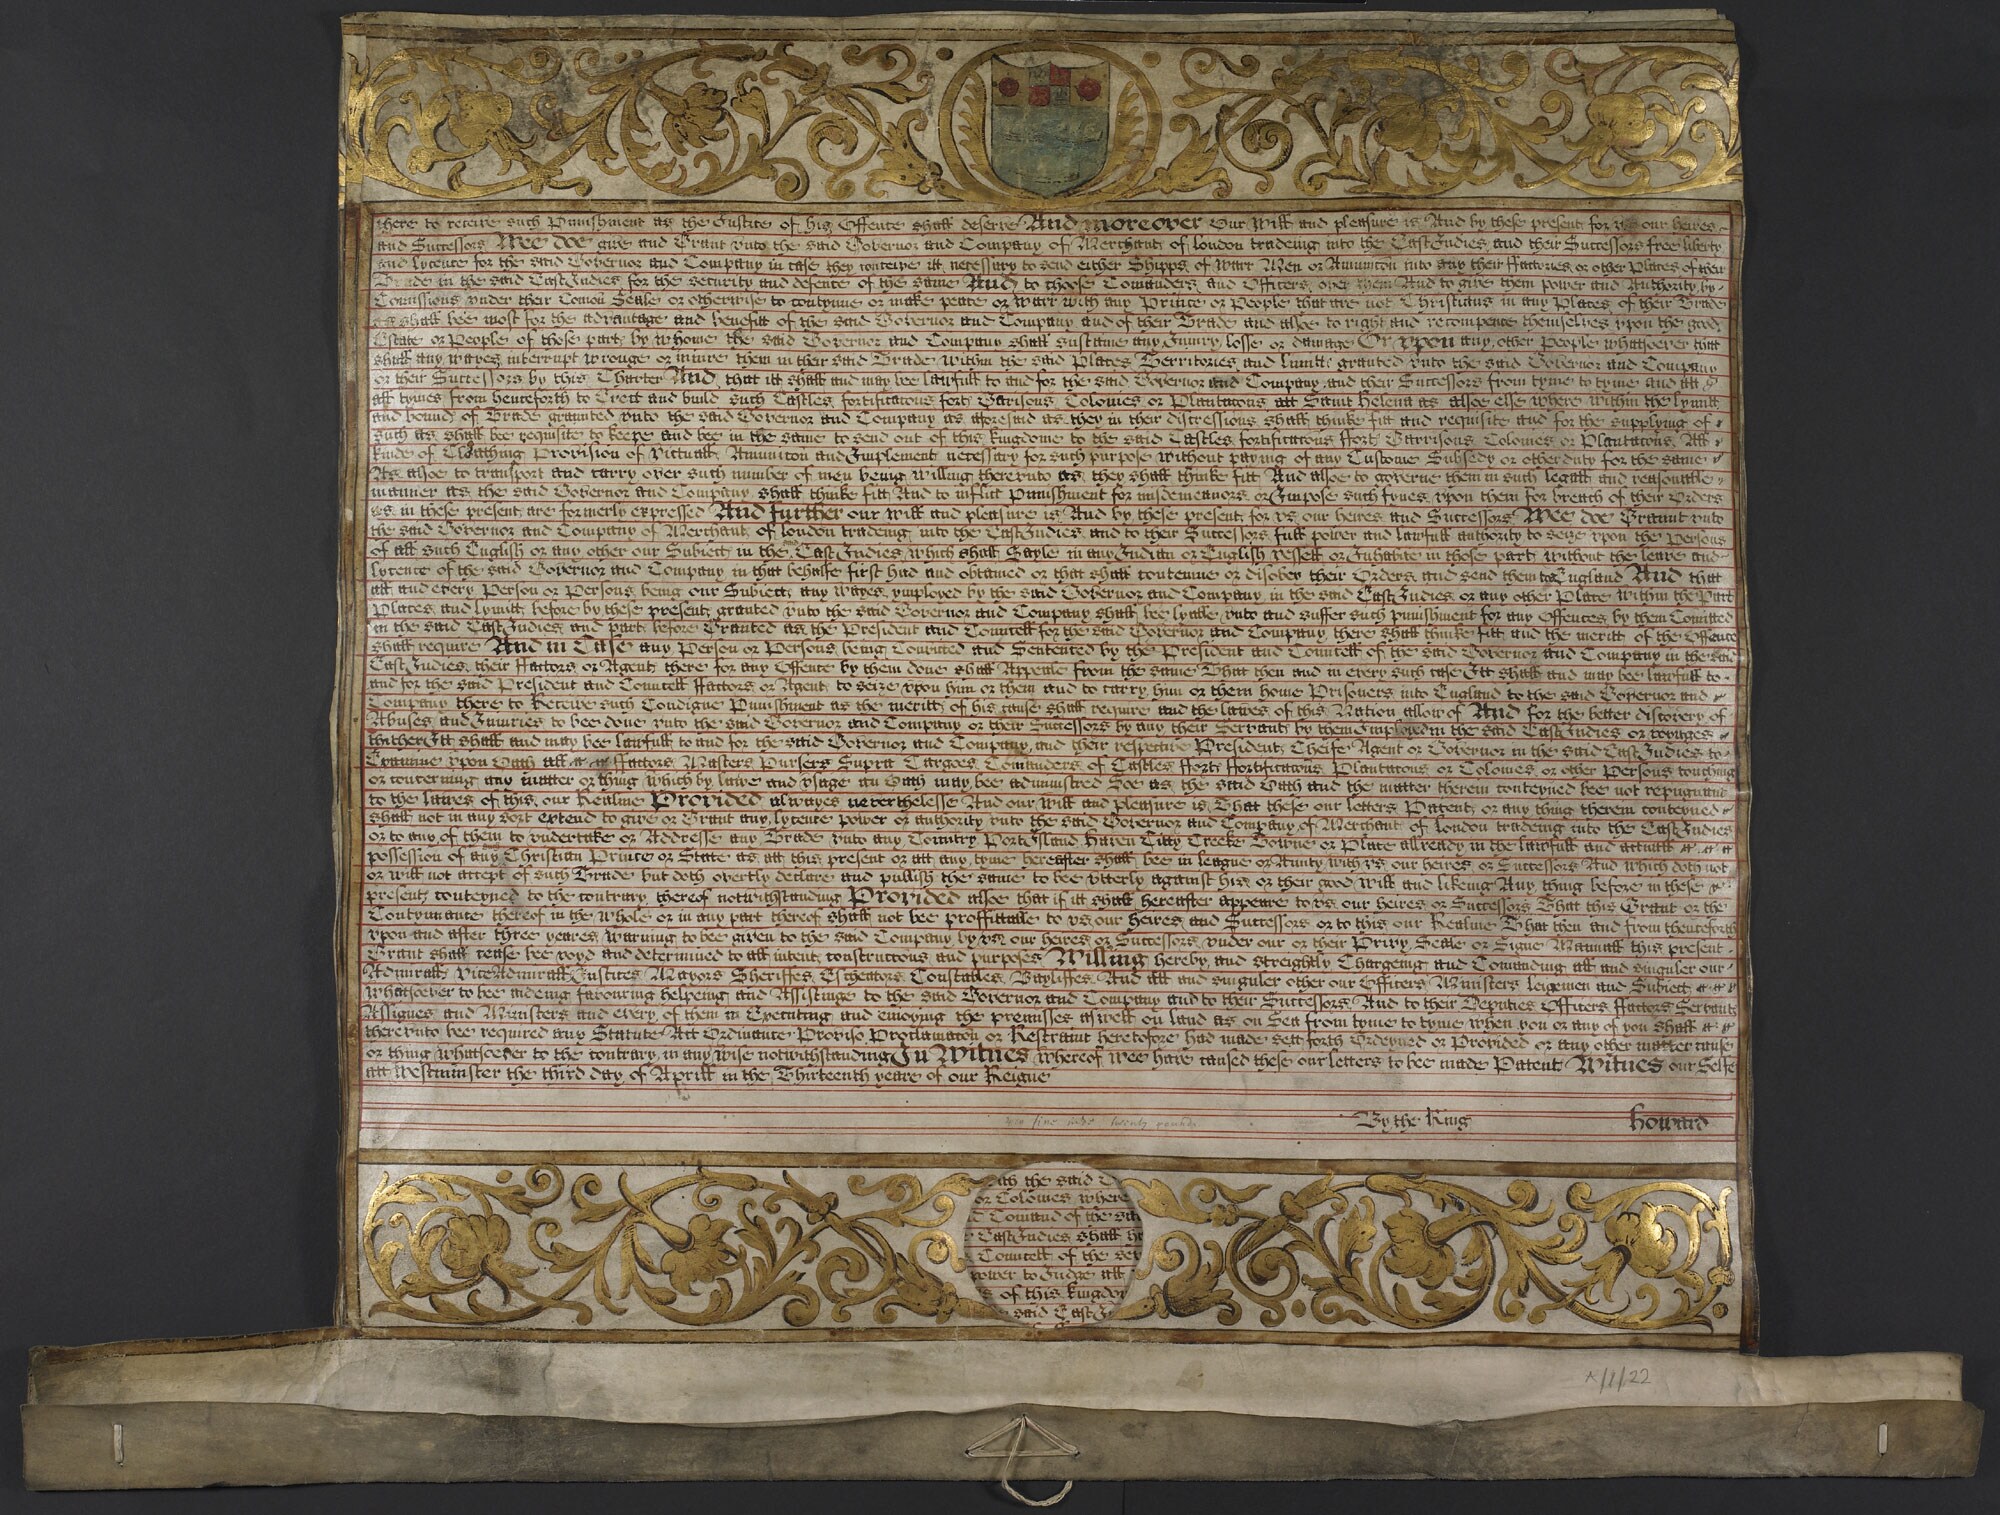 there to receive such Punishment as the Justice of his Offence shall deserve And moreover Our Will and pleasure is And by these present for us our heires
and Successors Wee doe give and Grant unto the said Governor and Company of Merchant of london tradeing into the East Indies and their Successors free liberty
and lycence for the said Governor and Company in case they conceive itt necessary to send either Shipps of Warr Men or Amunicon into any their Factories or other Places of their
Trade in the said East Indies for the security and defence of the same And to choose Comanders and Officers over them And to give them power and Authority by
Comissions under their Comon Seale or otherwise to continue or make peace or Warr with any Prince or People that are not Christians in any Places of their Trade
as shall bee most for the advantage and benefitt of the said Governor and Company and of their Trade and alsoe to right and recompence themselves upon the good
Estate or People of those part by whome the said Governor and Company shall sustaine any Injury losse or damage Or upon any other People whatsoever that
shall any wayes interrupt wronge or injure them in their said Trade within the said Places Territories and lymitt granted unto the said Governor and Company
or their Successors by this Charter And that itt shall and may bee lawfull to and for the said Governor and Company and their Successors from tyme to tyme and att
all tymes from henceforth to Erect and build such Castles fortificacons fort Garisons Colonies or Plantacons att Saint Helena as alsoe else where within the lymitt
and bound of Trade granted unto the said Governor and Company as aforesaid as they in their discressions shall thinke fitt and requisite and for the supplying of
such as shall bee requisite to keepe and bee in the same to send out of this kingdome to the said Castles fortificacons Fort Garrisons Colonies or Plantacons All
kinde of Cloathing Provision of Victuall Amunicon and Implement necessary for such purpose without paying of any Custome Subsedy or other duty for the same
As alsoe to transport and carry over such number of men being willing thereunto as they shall thinke fitt And alsoe to governe them in such legall and reasonable
manner as the said Governor and Company shall thinke fitt And to inflict Punishment for misdemeanors or Impose such fynes upon them for breach of their Orders
as in these present are formerly expressed And further our will and pleasure is And by these present for us our heires and Successors Wee doe Graunt unto
the said Governor and Company of Merchant of london tradeing into the East Indies and to their Successors full power and lawfull authority to seize upon the Persons
of all such English or any other our Subiect in the said East Indies which shall Sayle in any Indian or English vessell or Inhabite in those part without the leave and
lycence of the said Governor and Company in that behalfe first had and obtained or that shall contemne or disobey their Orders and send them to England And that
all and every Person or Persons being our Subiect any wayes ymployed by the said Governor and Company in the said East Indies or any other Place within the Part
Places and lymitt before by these present granted unto the said Governor and Company shall bee lyable unto and suffer such punishment for any Offences by them Comitted
in the said East Indies and part before Granted as the President and Councell for the said Governor and Company there shall thinke fitt and the meritt of the Offence
shall require And in Case any Person or Persons being Convicted and Sentenced by the President and Councell of the said Governor and Company in the said
East Indies their Factors or Agent there for any Offence by them done shall Appeale from the same That then and in every such case Itt shall and may bee lawfull to
and for the said President and Councell Factors or Agent to seize upon him or them and to carry him or them home Prisoners into England to the said Governor and
Company there to Receive such Condigne Punishment as the meritt of his cause shall require and the lawes of this Nation allow of And for the better discovery of
Abuses and Injuries to bee done unto the said Governor and Company or their Successors by any their Servant by them Imployed in the said East Indies or voyages
thither Itt shall and may bee lawfull to and for the said Governor and Company and their respective President Cheife Agent or Governor in the said East Indies to
Examine upon Oath all Factors Masters Pursers Supra Cargoes Comanders of Castles Fort Fortificacons Plantacons or Colonies or other Persons touching
or concerning any matter or thing which by lawe and usage an Oath may bee administred Soe as the said Oath and the matter therein conteyned bee not repugnant
to the lawes of this our Realme Provided alwayes neverthelesse And our will and pleasure is That these our letters Patent or any thing therein conteyned
shall not in any sort extend to give or Grant any lycence power or authority unto the said Governor and Company of Merchant of london tradeing into the East Indies
or to any of them to undertake or Addresse any Trade unto any Country Port Island Haven Citty Creeke Towne or Place allready in the lawfull and actuall
possession of any Christian Prince or State as att this present or att any tyme hereafter shall bee in league or Amity with us our heires or Successors And which doth not
or will not accept of such Trade but doth overtly declare and publish the same to bee utterly against his or their good will and likeing Any thing before in these
present conteyned to the contrary thereof notwithstanding Provided alsoe that if itt shall hereafter appeare to us our heires or Successors That this Grant or the
Contynuance thereof in the whole or in any part thereof shall not bee proffittable to us our heires and Successors or to this our Realme That then and from thenceforth
upon and after three yeares warning to bee given to the said Company by us our heires or Successors under our or their Privy Seale or Signe Manuall this present
Grant shall cease bee voyd and determined to all intent construccons and purposes Willing hereby and streightly Chargeing and Comanding all and singuler our
Admirall ViceAdmirall Justices Mayors Sheriffes Escheators Constables Bayliffes And all and singuler other our Officers Ministers leigemen and Subiect
whatsoever to bee aideing favouring helpeing and Assistinge to the said Governor and Company and to their Successors And to their Deputies Officers Factors Servant
Assignes and Ministers and every of them in Executing and enioying the premisses aswell on land as on Sea from tyme to tyme when you or any of you shall
thereunto bee required any Statute Act Ordinance Proviso Proclamacon or Restraint heretofore had made sett forth Ordeyned or Provided or any other matter cause
or thing whatsoever to the contrary in any wise notwithstanding In Witnes whereof wee have caused these our letters to bee made Patent Witnes our Selfe
att Westminster the third day of Aprill in the Thirteenth yeare of our Reigne
By the King Howard
the said
or Colonies where
Comand of the sai
East Indies shall
Councell of the
power to Judge all
of this kingdo
said East I
A/1/22